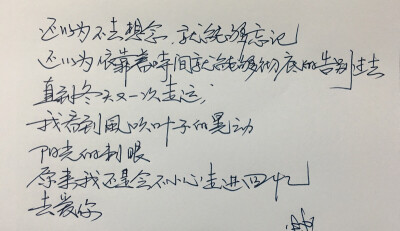 还以为不去想念,就能够忘记
还以为依靠着时间就能够彻底的告别过去
直到冬天又一次走远,
我看到風吹叶子的晃动
阳光的刺眼
原来我还是会不小心走进回忆
去爱你